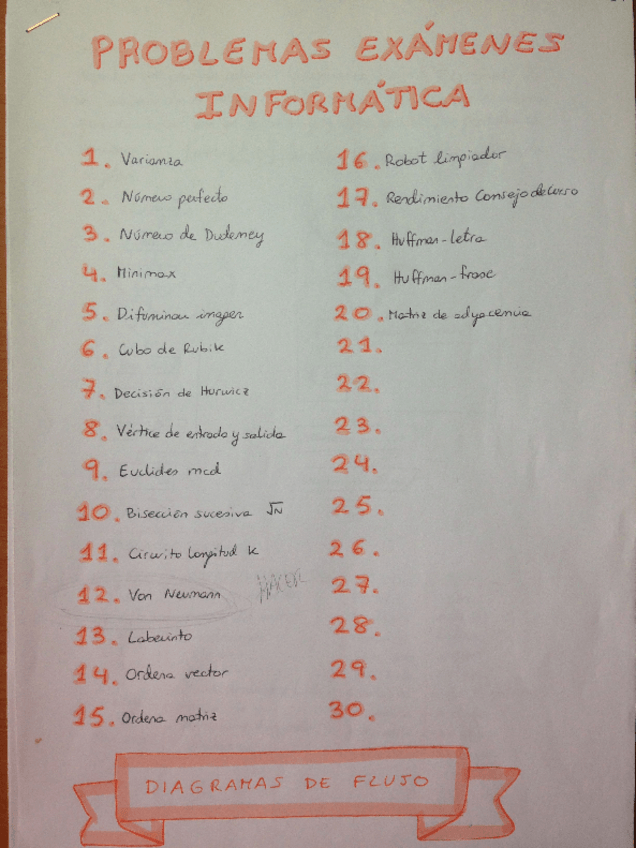 PROBLEMAS EXÁMENES
INFORMÁTICA
1. Varianza
2. Número perfecto
3. Número de Dudeney
4. Minimax
5. Difuminar imagen
6. Cubo de Rubik
7. Decisión de Hurwicz
8. Vértice de entrada y salida
9. Euclides mcd
10. Bisección sucesiva √N
11. Circuito longitud K
12. Von Neumann HACER
13. Laberinto
14. Ordena vector
15. Ordena matriz
16. Robot limpiador
17. Rendimiento Consejo de Curso
18. Huffman-letra
19. Huffman-frase
20. Matriz de adyacencia
21.
22.
23.
24.
25.
26.
27.
28.
29.
30.
DIAGRAMAS DE FLUJO